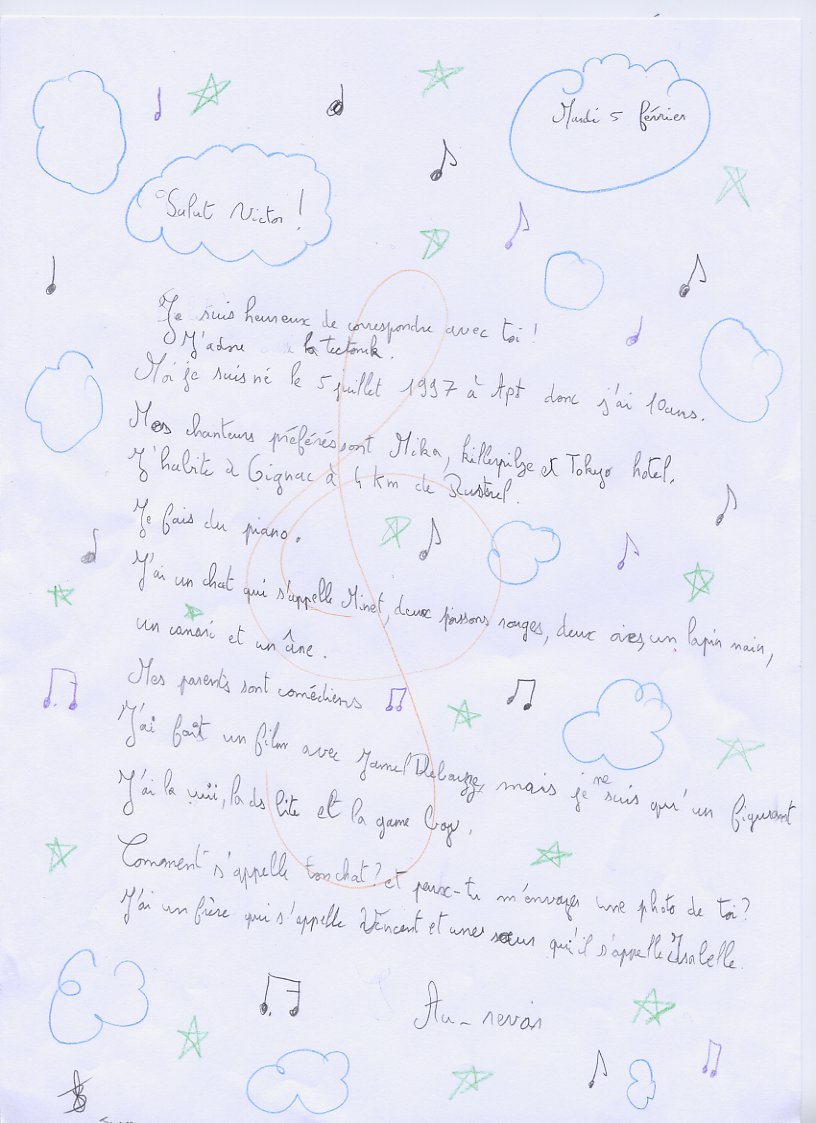 Mardi 5 février
Salut Victor !
Je suis heureux de correspondre avec toi !
J'adore la tectonik.
Moi je suis né le 5 juillet 1997 à Apt donc j'ai 10 ans.
Mes chanteurs préférés sont Mika, killerpilze et Tokyo hotel.
J'habite à Gignac à 4 km de Rustrel.
Je fais du piano.
J'ai un chat qui s'appelle Minet, deux poissons rouges, deux oies, un lapin nain,
un canari et un âne.
Mes parents sont comédiens
J'ai fait un film avec Jamel Debouze, mais je ne suis qu'un figurant
J'ai la wii, la ds lite et la game boy.
Comment s'appelle ton chat ? et peux-tu m'envoyer une photo de toi ?
J'ai un frère qui s'appelle Vincent et une sœur qu'il s'appelle Isabelle.
Au-revoir